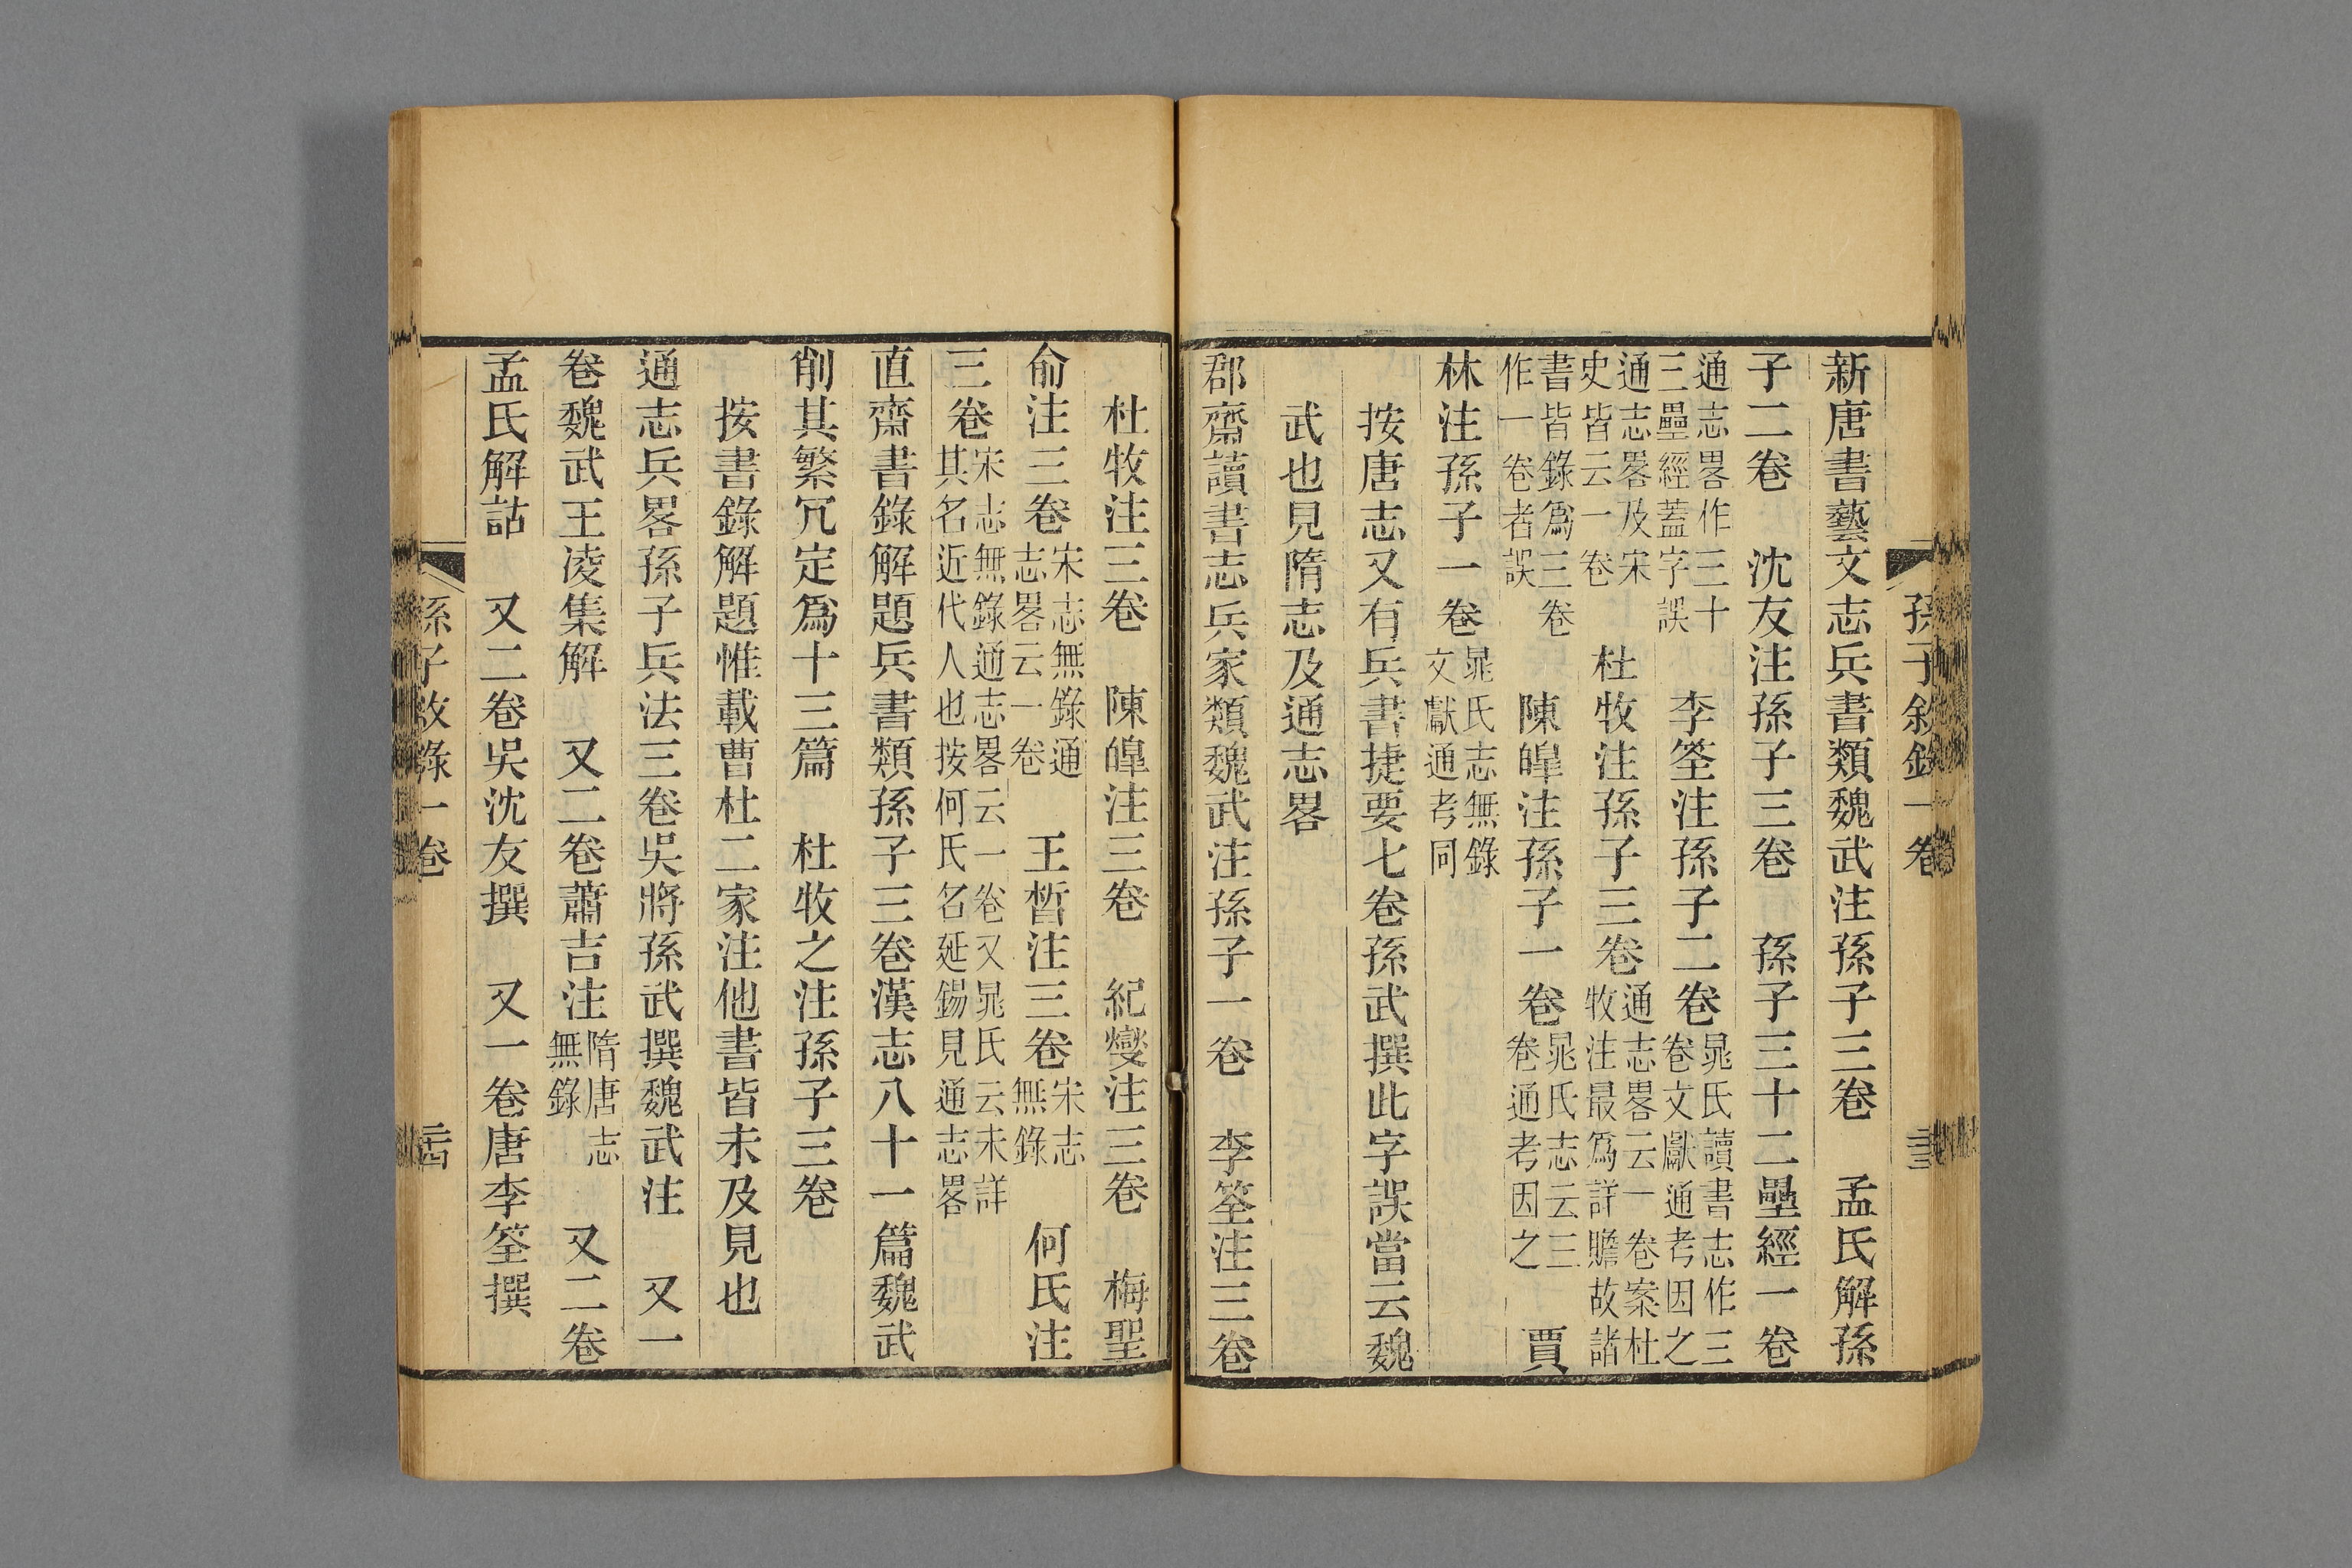 孫子敘錄一卷
新唐書藝文志兵書類魏武注孫子三卷　孟氏解孫
子二卷　沈友注孫子三卷　孫子三十二壘經一卷
通志畧作三十
三壘經蓋字誤
李筌注孫子二卷
晁氏讀書志作三
卷文獻通考因之
通志畧及宋
史皆云一卷
杜牧注孫子三卷
通志畧云一卷案杜
牧注最爲詳贍故諸
書皆錄爲三卷
作一卷者誤
陳皥注孫子一卷
晁氏志云三
卷通考因之
賈
林注孫子一卷
晁氏志無錄
文獻通考同
按唐志又有兵書捷要七卷孫武撰此字誤當云魏
武也見隋志及通志畧
郡齋讀書志兵家類魏武注孫子一卷　李筌注三卷
杜牧注三卷　陳皥注三卷　紀燮注三卷　梅聖
俞注三卷
宋志無錄通
志畧云一卷
王晳注三卷
宋志
無錄
何氏注
三卷
宋志無錄通志畧云一卷又晁氏云未詳
其名近代人也按何氏名延錫見通志畧
直齋書錄解題兵書類孫子三卷漢志八十一篇魏武
削其繁冗定爲十三篇　杜牧之注孫子三卷
按書錄解題惟載曹杜二家注他書皆未及見也
通志兵畧孫子兵法三卷吳將孫武撰魏武注　又一
卷魏武王凌集解　又二卷蕭吉注
隋唐志
無錄
又二卷
孟氏解詁　又二卷吳沈友撰　又一卷唐李筌撰
孫子敘錄一卷